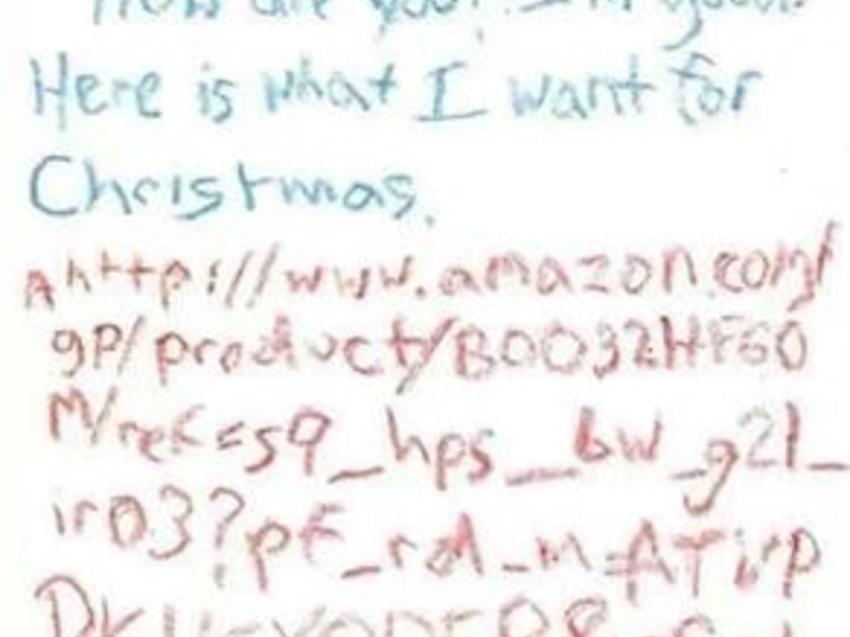 How are you? I'm good.
Here is what I want for
Christmas.
A http://www.amazon.com/
gp/product/B0032HF60
M/ref=s9_hps_bw_g21_
ir03?pf_rd_m=ATVP